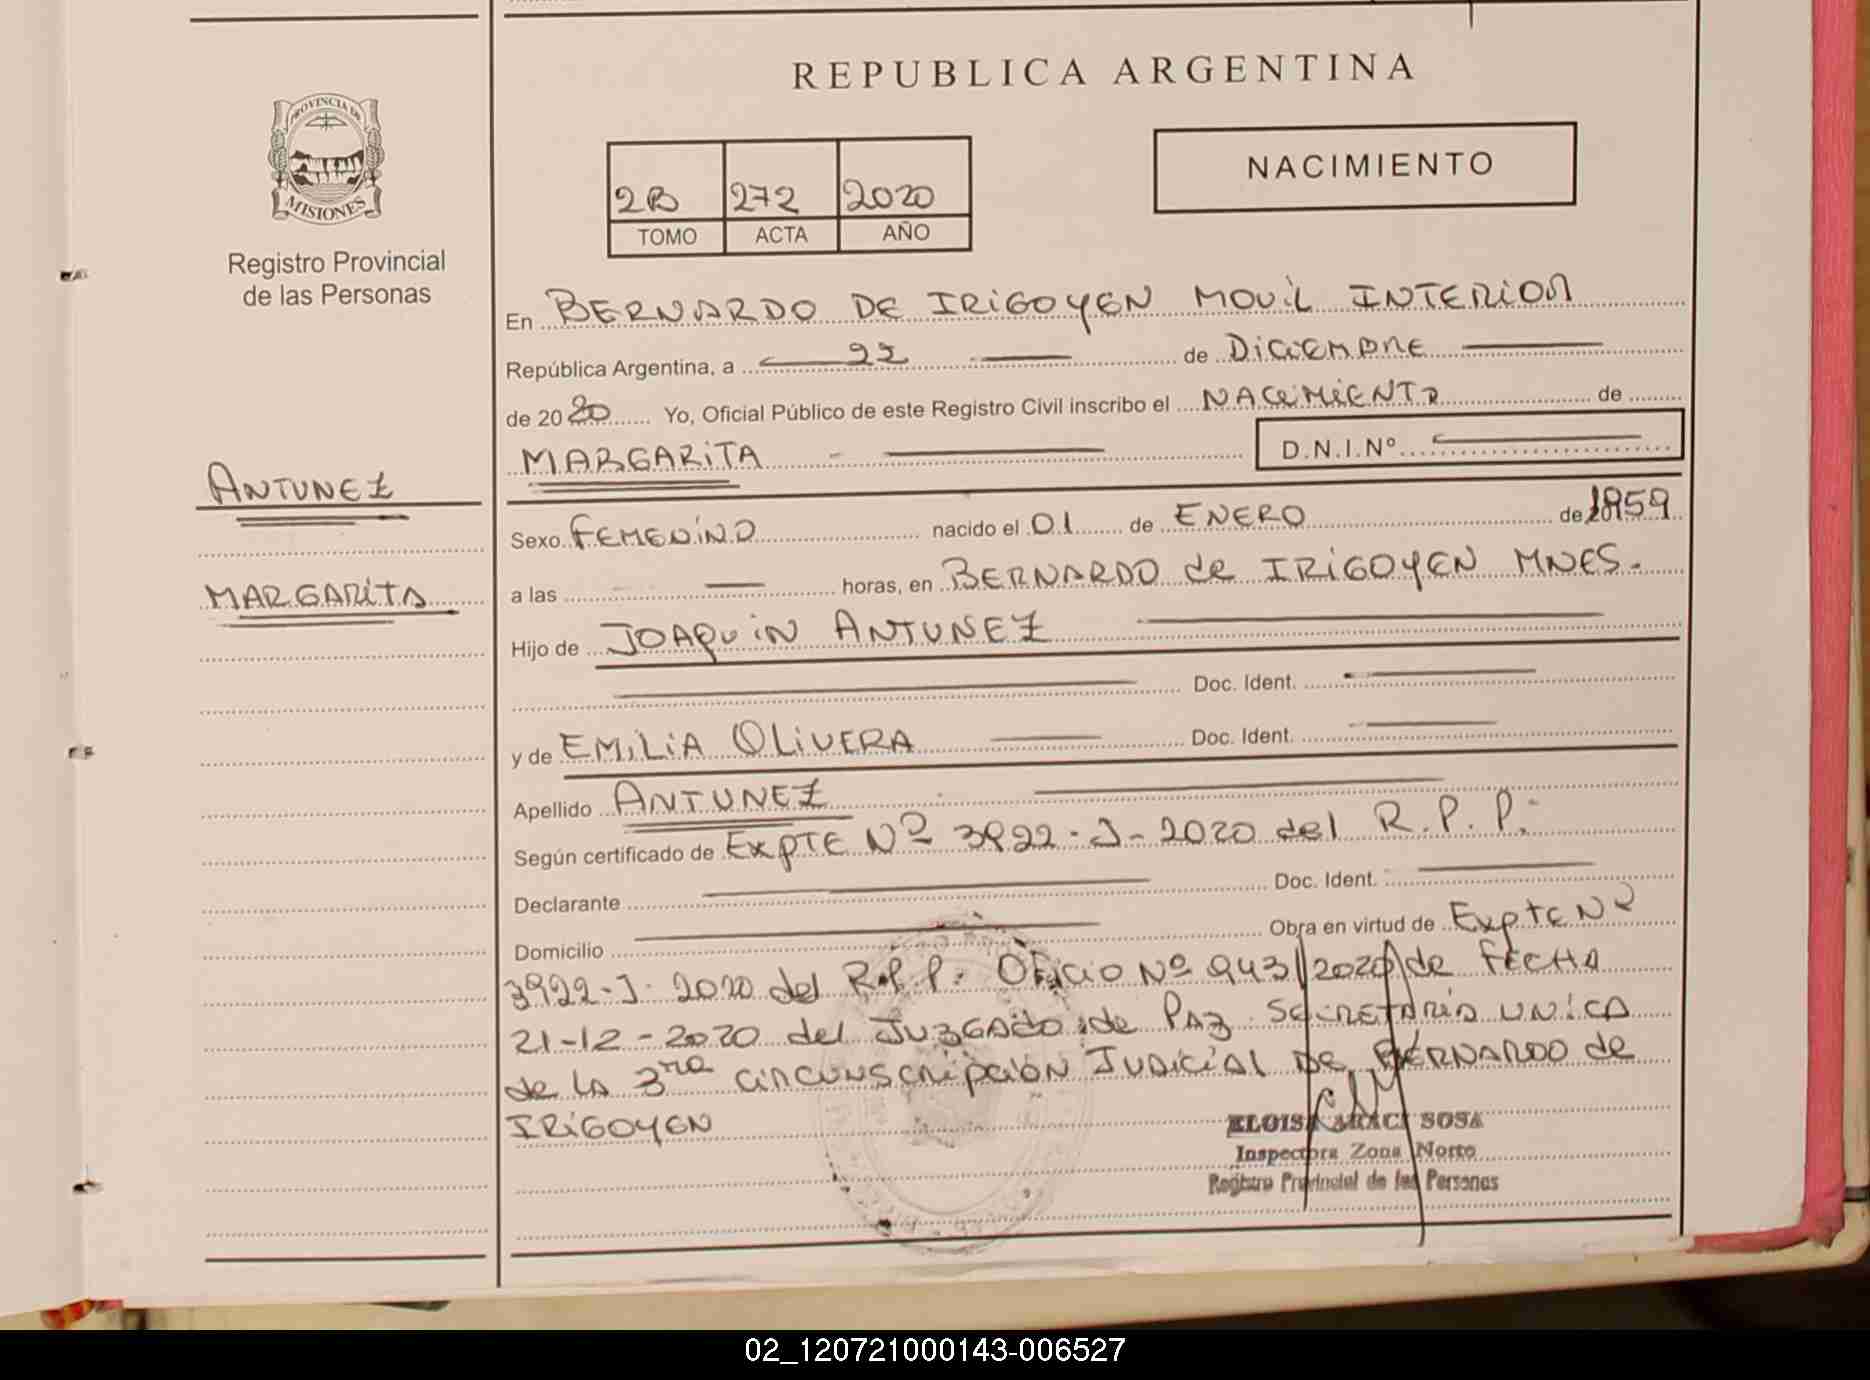 REPUBLICA ARGENTINA
PROVINCIA DE
MISIONES
Registro Provincial
de las Personas
2B 272 2020
TOMO ACTA AÑO
NACIMIENTO
En BERNARDO DE IRIGOYEN MOVIL INTERIOR
República Argentina, a 22 de DICIEMBRE
de 2020 Yo, Oficial Público de este Registro Civil inscribo el NACIMIENTO de
MARGARITA D.N.I.Nº
ANTUNEZ
MARGARITA
Sexo FEMENINO nacido el 01 de ENERO de 1959
a las horas, en BERNARDO de IRIGOYEN MNES.
Hijo de JOAQUIN ANTUNEZ
Doc. Ident.
y de EMILIA OLIVERA Doc. Ident.
Apellido ANTUNEZ
Según certificado de EXPTE Nº 3922-J-2020 del R.P.P.
Declarante Doc. Ident.
Domicilio Obra en virtud de EXPTE Nº
3922-J-2020 del R.P.P. OFICIO Nº 943/2020 de FECHA
21-12-2020 del JUZGADO de PAZ SECRETARIA UNICA
de LA 3ra CIRCUNSCRIPCIÓN JUDICIAL DE BERNARDO de
IRIGOYEN
ELOISA ARACI SOSA
Inspectora Zona Norte
Registro Provincial de las Personas
02_120721000143-006527